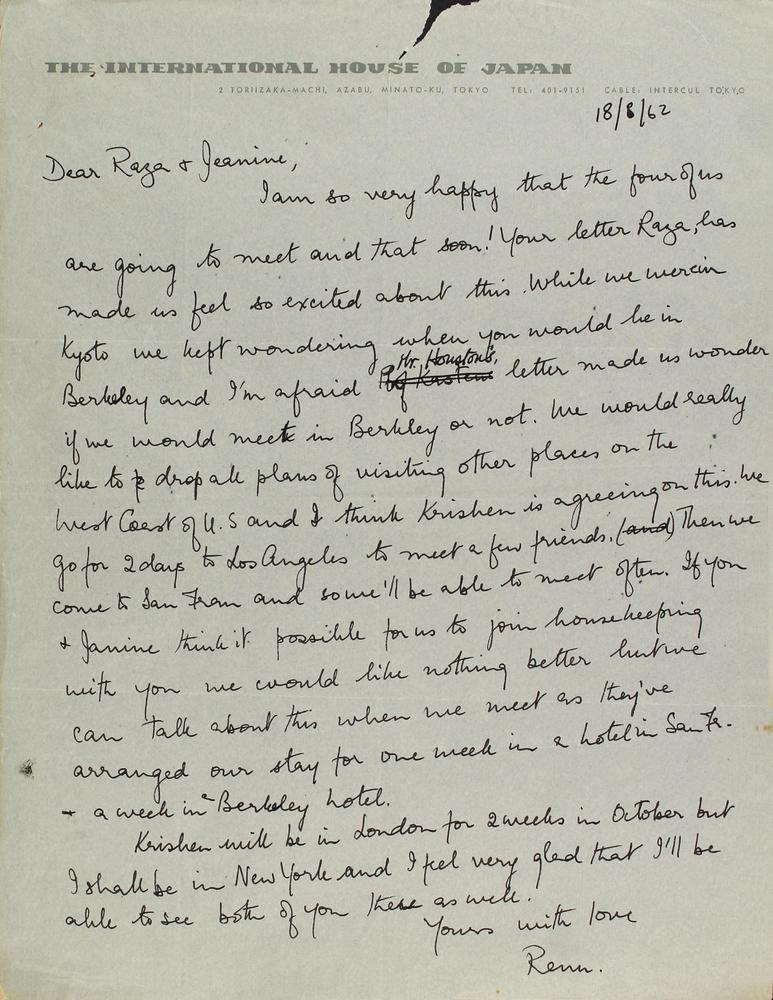 THE INTERNATIONAL HOUSE OF JAPAN
2 TORIIZAKA-MACHI, AZABU, MINATO-KU, TOKYO TEL: 401-9151 CABLE: INTERCUL TOKYO
18/8/62
Dear Raza & Jeanine,
I am so very happy that the four of us
are going to meet and that soon! Your letter Raza, has
made us feel so excited about this. While we were in
Kyoto we kept wondering when you would be in
Mr. Houston's,
Berkeley and I'm afraid letter made us wonder
if we would meet in Berkley or not. We would really
like to drop all plans of visiting other places on the
West Coast of U.S and I think Krishen is agreeing on this. We
go for 2 days to Los Angeles to meet a few friends. (and) Then we
come to San Fran and so we'll be able to meet often. If you
& Janine think it possible for us to join housekeeping
with you we would like nothing better but we
can talk about this when we meet as they've
arranged our stay for one week in a hotel in San Fr.
+ a week in a Berkeley hotel.
Krishen will be in London for 2 weeks in October but
I shall be in New York and I feel very glad that I'll be
able to see both of you there as well.
Yours with love
Renu.